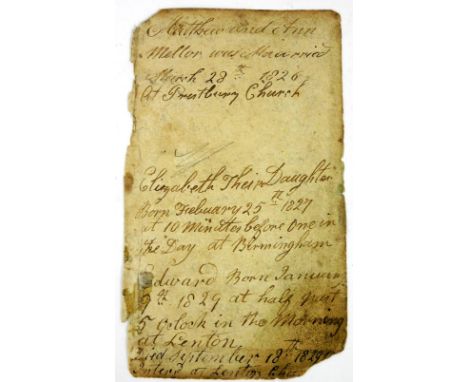 Matthew and Ann
Mellor was Maarried
March 28th 1826
At Prestbury Church
Elizabeth Their Daughter
Born Febuary 25th 1827
at 10 Minutes before One in
the Day at Birmingham
Edward Born January
9th 1829 at half past
5 Oclock in the Morning
at Lenton
Died September 18th 1829
Interd at Lenton